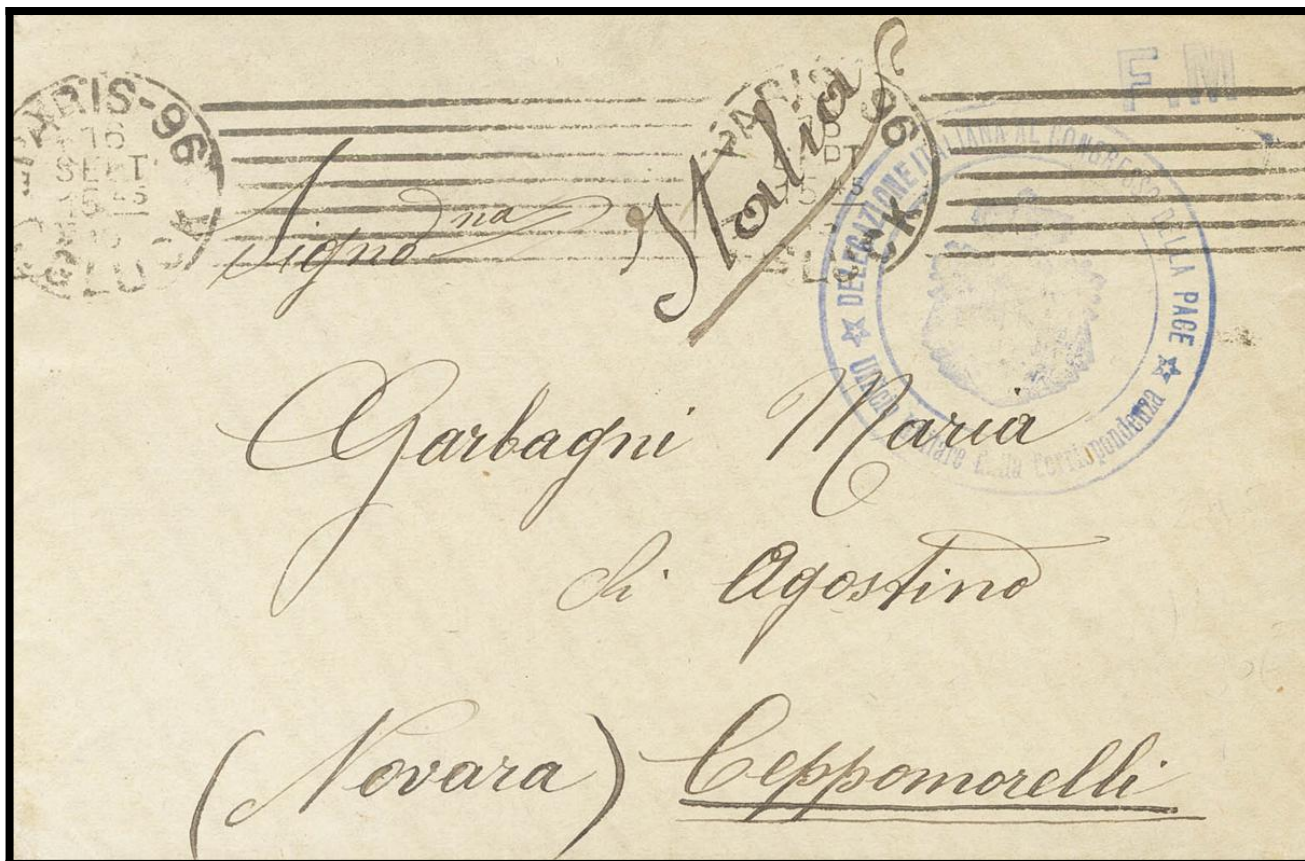 PARIS-96
SEPT
15 45
PARIS 96
15 45
GLUCK
F.M.
Italia
DELEGAZIONE ITALIANA AL CONGRESSO DELLA PACE
Ufficio Militare della Corrispondenza
Garbagni Maria
di Agostino
(Novara) Ceppomorelli